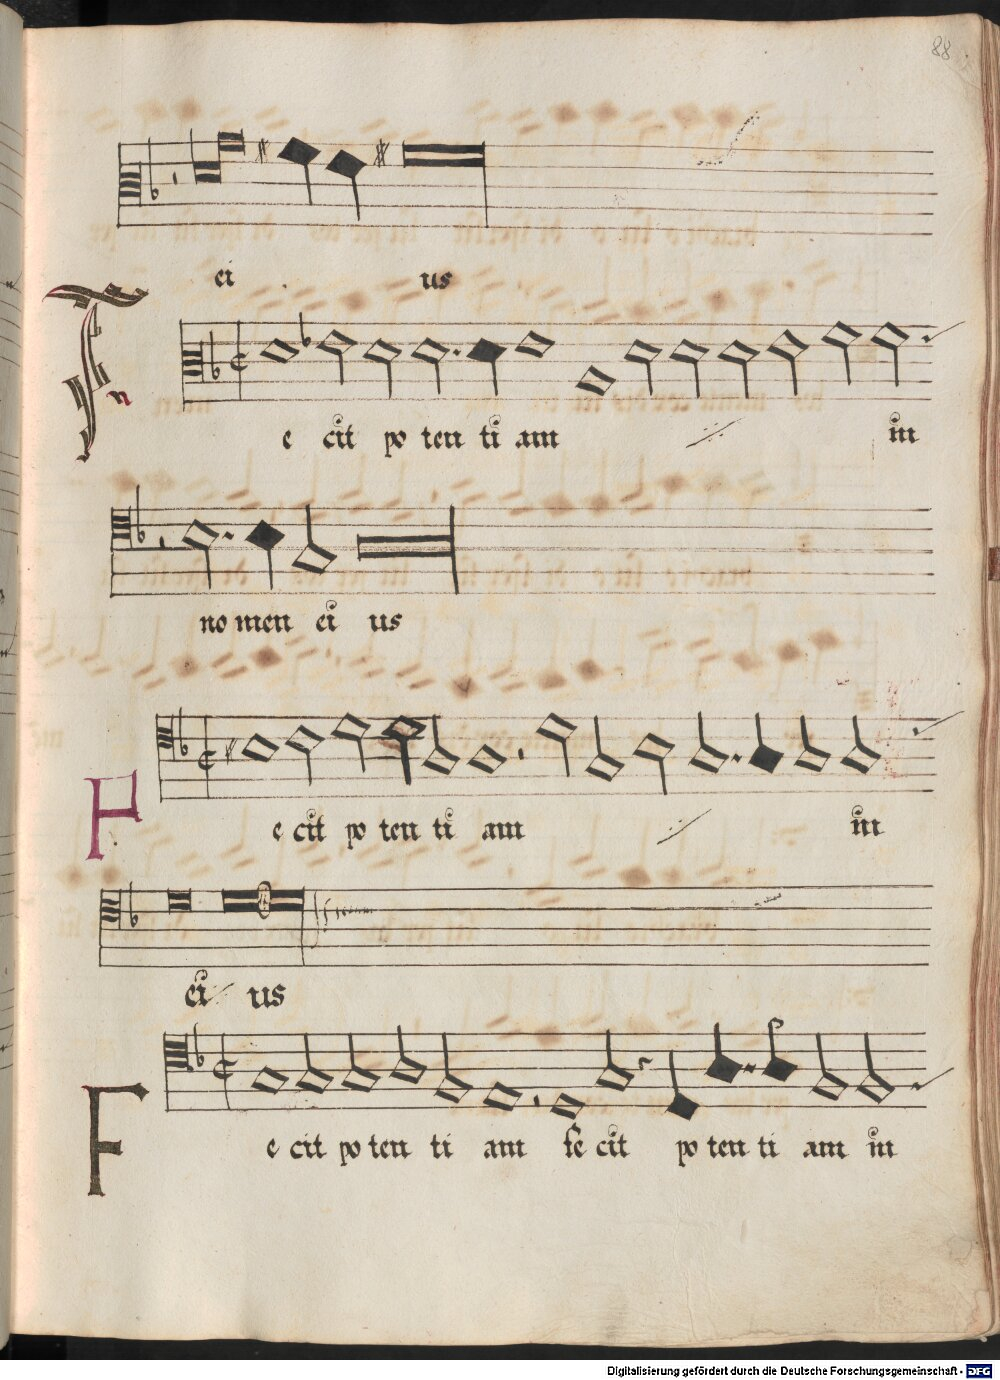 88
ei us
Fn
e cit po ten ti am in
no men ei us
F
e cit po ten ti am in
ei us
F
e cit po ten ti am fe cit po ten ti am in
Digitalisierung gefördert durch die Deutsche Forschungsgemeinschaft - DFG